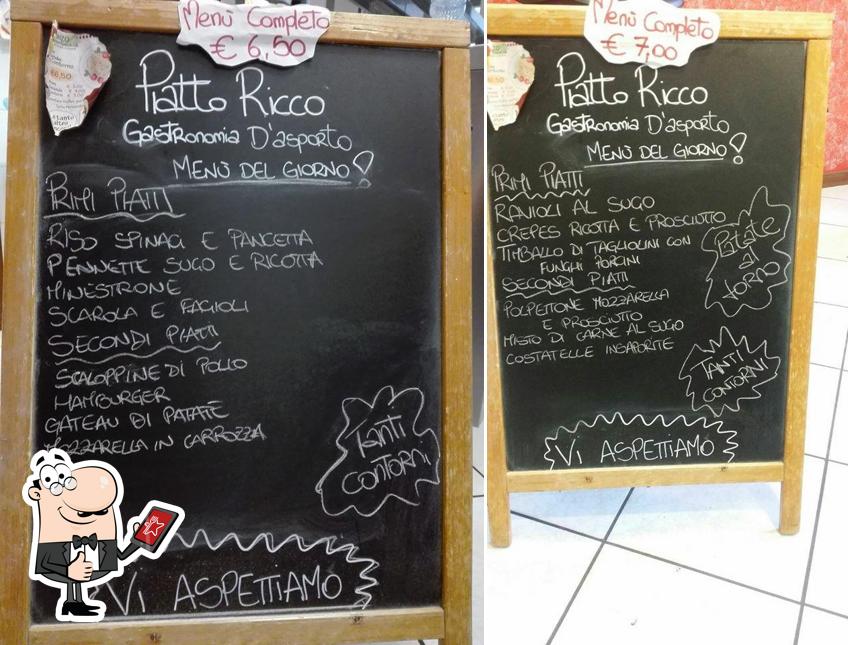 Menù Completo
€ 6,50
Piatto Ricco
Gastronomia D'asporto
MENÙ DEL GIORNO!
PRIMI PIATTI
RISO SPINACI E PANCETTA
PENNETTE SUGO E RICOTTA
MINESTRONE
SCAROLA E FAGIOLI
SECONDI PIATTI
SCALOPPINE DI POLLO
HAMBURGER
GATEAU DI PATATE
MOZZARELLA IN CARROZZA
Tanti
CONTORNI
Vi ASPETTIAMO
Menù Completo
€ 7,00
Piatto Ricco
Gastronomia D'asporto
MENÙ DEL GIORNO!
PRIMI PIATTI
RAVIOLI AL SUGO
CREPES RICOTTA E PROSCIUTTO
TIMBALLO DI TAGLIOLINI CON
FUNGHI PORCINI
SECONDI PIATTI
POLPETTONE MOZZARELLA
E PROSCIUTTO
MISTO DI CARNE AL SUGO
COSTATELLE INSAPORITE
Patate
al
forno
TANTI
CONTORNI
Vi ASPETTIAMO